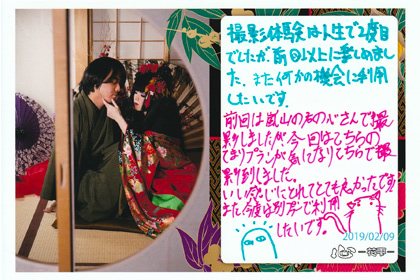 撮影体験は人生で2度目
でしたが前回以上に楽しめまし
た、また何かの機会に利用
したいです。
前回は嵐山の
影しましたが今回はこちらの
プランが気になりこちらで撮
影しました。
いい感じにとれてとても良かったです
また今度は別プランで利用
したいです。
2019/02/09